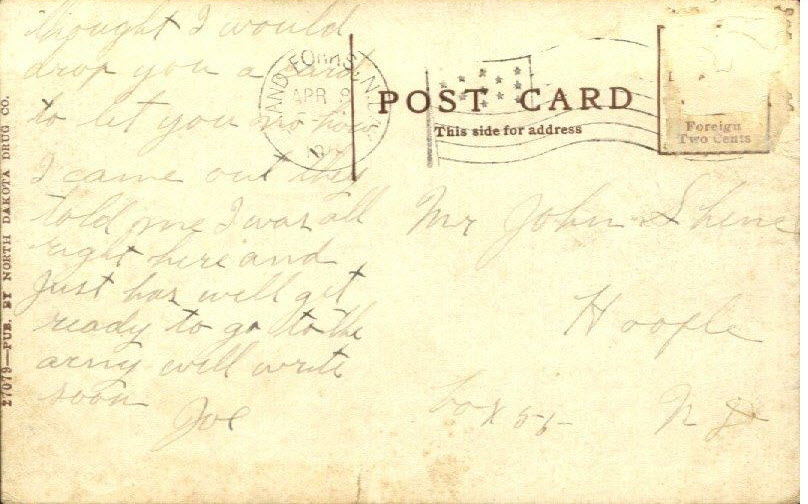 thought I would
drop you a card
to let you no how
I came out they
told me I was all
right here and
Just has well get
ready to go to the
army will write
soon
Joe
27079—PUB. BY NORTH DAKOTA DRUG CO.
GRAND FORKS, N. DAK.
APR 9
POST CARD
This side for address
Foreign
Two Cents
Mr John Shine
Hoople
box 55
N D